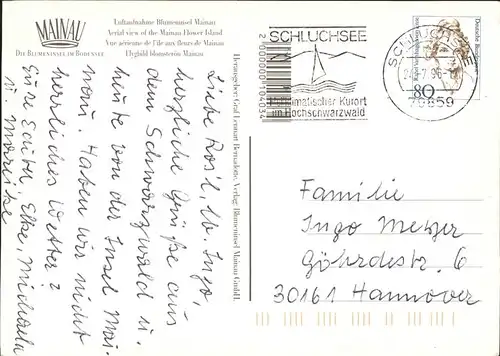 MAINAU
DIE BLUMENINSEL IM BODENSEE
Luftaufnahme Blumeninsel Mainau
Aerial view of the Mainau Flower Island
Vue aérienne de l'île aux fleurs de Mainau
Flygbild blomsterön Mainau
Liebe Rosl, lb. Ingo,
herzliche Grüße aus
dem Schwarzwald u.
heute von der Insel Mai-
nau. Haben wir nicht
herrliches Wetter?
Eure Edith, Elke, Michaela
u. Mareike
Herausgeber: Graf Lennart Bernadotte, Verlag: Blumeninsel Mainau GmbH.
SCHLUCHSEE
Heilklimatischer Kurort
im Hochschwarzwald
SCHLUCHSEE
-7.96
79859
Deutsche Bundespost
80
Familie
Ingo Metzger
Göhrdestr. 6
30161 Hannover